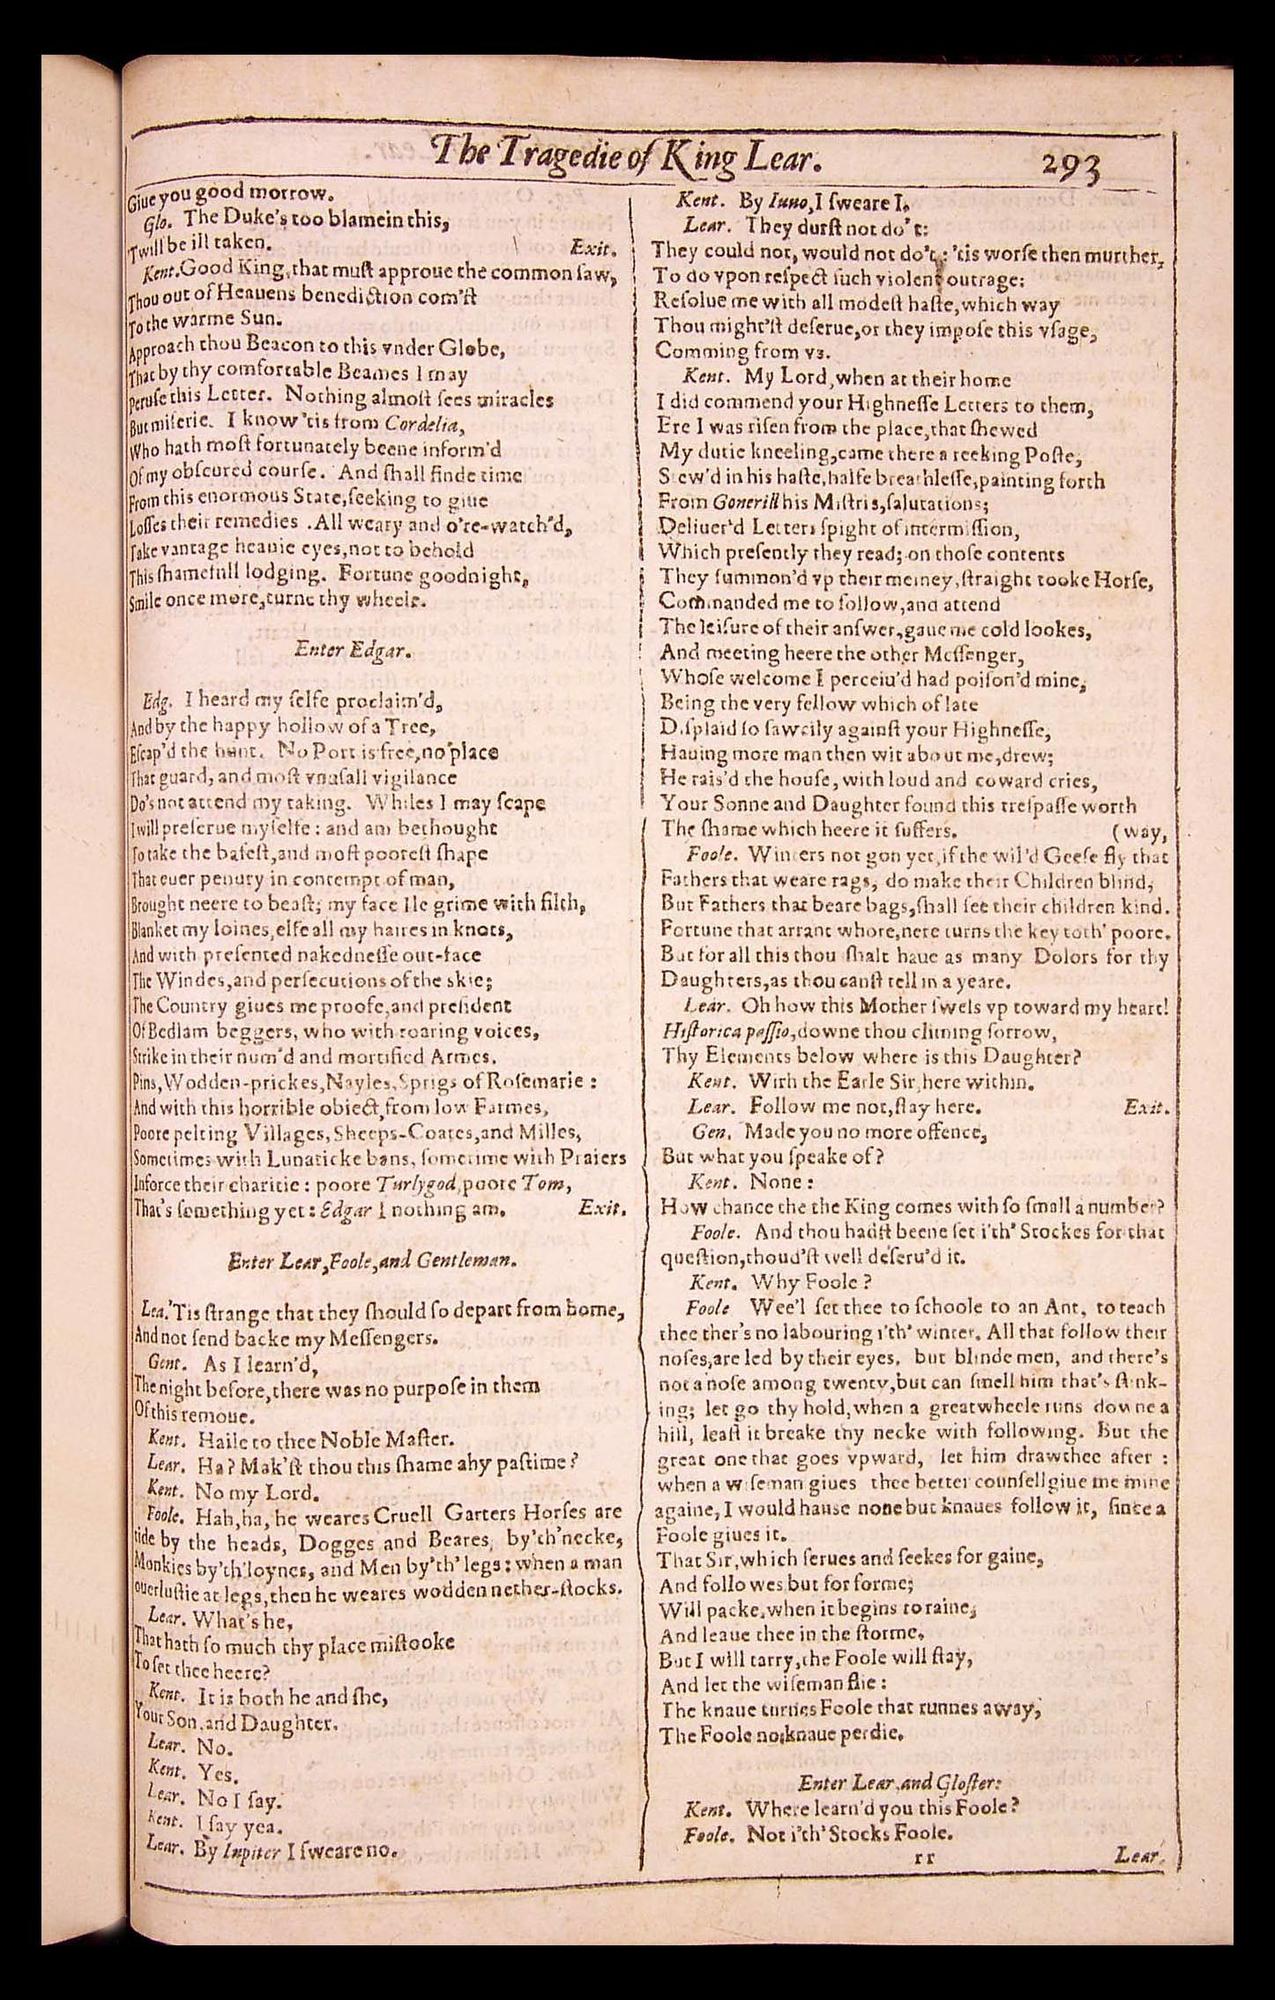 The Tragedie of King Lear. 293
Giue you good morrow.
Glo. The Duke's too blamein this,
'Twill be ill taken. Exit.
Kent.Good King, that muſt approue the common ſaw,
Thou out of Heauens benediction com'ſt
To the warme Sun.
Approach thou Beacon to this vnder Globe,
That by thy comfortable Beames I may
Peruſe this Letter. Nothing almoſt ſees miracles
But miſerie. I know 'tis from Cordelia,
Who hath moſt fortunately beene inform'd
Of my obſcured courſe. And ſhall finde time
From this enormous State,ſeeking to giue
Loſſes their remedies .All weary and o're-watch'd,
Take vantage heauie eyes,not to behold
This ſhamefull lodging. Fortune goodnight,
Smile once more,turne thy wheele.
Enter Edgar.
Edg. I heard my ſelfe proclaim'd,
And by the happy hollow of a Tree,
Eſcap'd the hunt. No Port is free,no place
That guard, and moſt vnuſall vigilance
Do's not attend my taking. Whiles I may ſcape
I will preſerue myſelfe : and am bethought
To take the baſeſt,and moſt pooreſt ſhape
That euer penury in contempt of man,
Brought neere to beaſt; my face Ile grime with filth,
Blanket my loines,elſe all my haires in knots,
And with preſented nakedneſſe out-face
The Windes,and perſecutions of the skie;
The Country giues me proofe,and preſident
Of Bedlam beggers, who with roaring voices,
Strike in their num'd and mortified Armes.
Pins,Wodden-prickes,Nayles,Sprigs of Roſemarie :
And with this horrible obiect,from low Farmes,
Poore pelting Villages,Sheeps-Coates,and Milles,
Sometimes with Lunaticke bans, ſometime with Praiers
Inforce their charitie : poore Turlygod,poore Tom,
That's ſomething yet : Edgar I nothing am. Exit.
Enter Lear,Foole,and Gentleman.
Lea.'Tis ſtrange that they ſhould ſo depart from home,
And not ſend backe my Meſſengers.
Gent. As I learn'd,
The night before,there was no purpoſe in them
Of this remoue.
Kent. Haile to thee Noble Maſter.
Lear. Ha? Mak'ſt thou this ſhame ahy paſtime?
Kent. No my Lord.
Foole. Hah,ha, he weares Cruell Garters Horſes are
tide by the heads, Dogges and Beares, by'th'necke,
Monkies by'th'loynes, and Men by'th' legs : when a man
ouerluſtie at legs,then he weares wodden nether-ſtocks.
Lear. What's he,
That hath ſo much thy place miſtooke
To ſet thee heere?
Kent. It is both he and ſhe,
Your Son,and Daughter.
Lear. No.
Kent. Yes.
Lear. No I ſay.
Kent. I ſay yea.
Lear. By Iupiter I ſweare no.
Kent. By Iuno,I ſweare I.
Lear. They durſt not do't:
They could not, would not do't : 'tis worſe then murther,
To do vpon reſpect ſuch violent outrage:
Reſolue me with all modeſt haſte,which way
Thou might'ſt deſerue,or they impoſe this vſage,
Comming from vs.
Kent. My Lord,when at their home
I did commend your Highneſſe Letters to them,
Ere I was riſen from the place,that ſhewed
My dutie kneeling,came there a reeking Poſte,
Stew'd in his haſte,halfe breathleſſe,painting forth
From Gonerill his Miſtris,ſalutations;
Deliuer'd Letters ſpight of intermiſſion,
Which preſently they read; on thoſe contents
They ſummon'd vp their meiney,ſtraight tooke Horſe,
Commanded me to follow,and attend
The leiſure of their anſwer,gaue me cold lookes,
And meeting heere the other Meſſenger,
Whoſe welcome I perceiu'd had poiſon'd mine,
Being the very fellow which of late
Diſplaid ſo ſawcily againſt your Highneſſe,
Hauing more man then wit about me,drew;
He rais'd the houſe, with loud and coward cries,
Your Sonne and Daughter found this treſpaſſe worth
The ſhame which heere it ſuffers. (way,
Foole. Winters not gon yet,if the wil'd Geeſe fly that
Fathers that weare rags, do make their Children blind,
But Fathers that beare bags,ſhall ſee their children kind.
Fortune that arrant whore,nere turns the key toth' poore.
But for all this thou ſhalt haue as many Dolors for thy
Daughters,as thou canſt tell in a yeare.
Lear. Oh how this Mother ſwels vp toward my heart!
Hiſtorica paſſio,downe thou climing ſorrow,
Thy Elements below where is this Daughter?
Kent. Wirh the Earle Sir,here within.
Lear. Follow me not,ſtay here. Exit.
Gen. Made you no more offence,
But what you ſpeake of?
Kent. None :
How chance the the King comes with ſo ſmall a number?
Foole. And thou hadſt beene ſet i'th' Stockes for that
queſtion,thoud'ſt well deſeru'd it.
Kent. Why Foole?
Foole Wee'l ſet thee to ſchoole to an Ant, to teach
thee ther's no labouring i'th' winter. All that follow their
noſes,are led by their eyes, but blinde men, and there's
not a noſe among twenty,but can ſmell him that's ſtink-
ing; let go thy hold,when a great wheele runs downe a
hill, leaſt it breake thy necke with following. But the
great one that goes vpward, let him draw thee after :
when a wiſeman giues thee better counſell giue me mine
againe, I would hauſe none but knaues follow it, ſince a
Foole giues it.
That Sir,which ſerues and ſeekes for gaine,
And followes but for forme;
Will packe,when it begins to raine,
And leaue thee in the ſtorme,
But I will tarry,the Foole will ſtay,
And let the wiſeman flie :
The knaue turnes Foole that runnes away,
The Foole no knaue perdie.
Enter Lear,and Gloſter:
Kent. Where learn'd you this Foole?
Foole. Not i'th' Stocks Foole.
rr Lear.